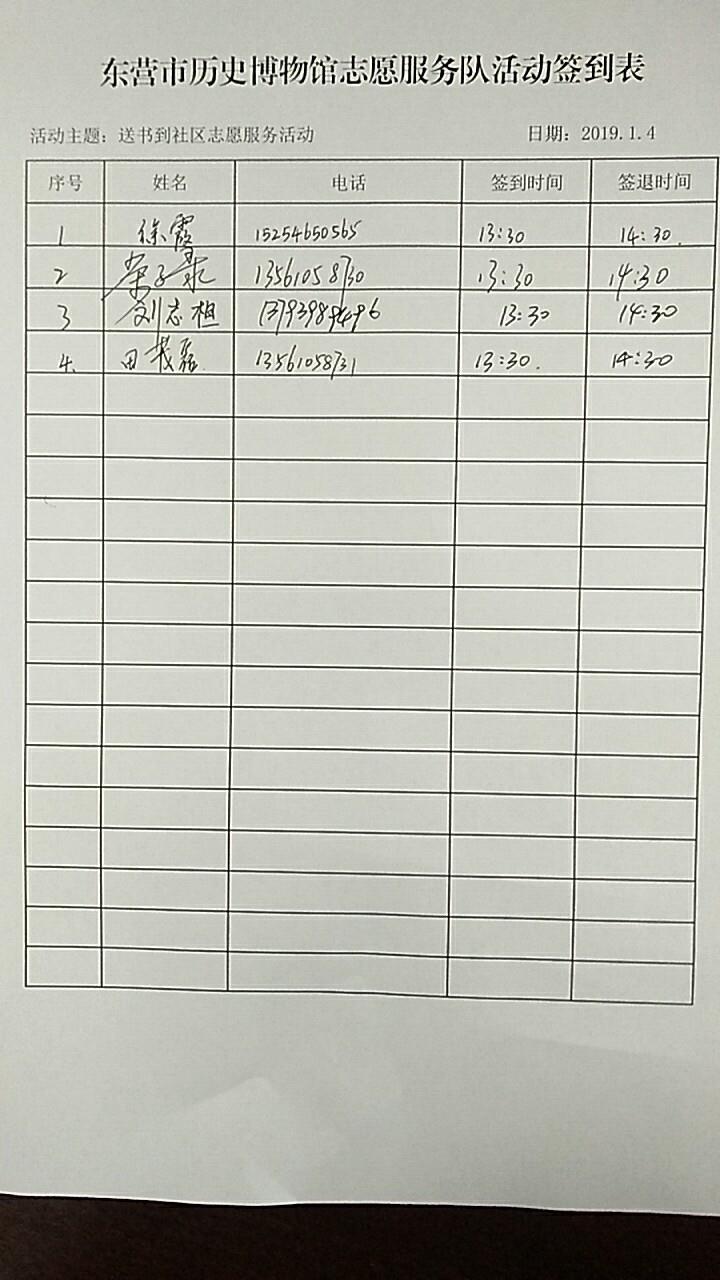 东营市历史博物馆志愿服务队活动签到表
活动主题：送书到社区志愿服务活动 日期：2019.1.4
序号 姓名 电话 签到时间 签退时间
1 徐霞 15254650565 13:30 14:30.
2 荣子菲 13561058730 13:30 14:30
3 刘志祖 13:30 14:30
4. 田茂磊 13561058731 13:30. 14:30